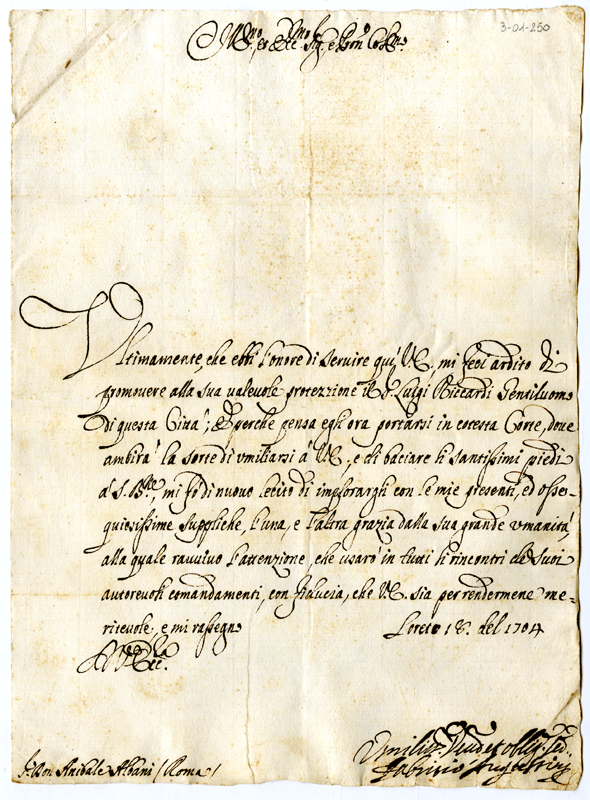 3-01-250
Ill.mo, et Ecc.mo Sig.r e Pron Col.mo
Ultimamente, che ebbi l'onore di servire quì V.E. mi feci ardito di
promovere alla sua valevole protezzione il S.r Luigi Riccardi Gentiluomo
di questa Città; E perche pensa egli ora portarsi in cotesta Corte, dove
ambirà la sorte di umiliarsi à V.E. e di baciare li santissimi piedi
à S. B.ne, mi fò di nuovo lecito di implorargli con le mie presenti, ed osse-
quiosissime suppliche, l'una, e l'altra grazia dalla sua grande umanità,
alla quale ravvivo l'attenzione, che usarò in tutti li rincontri de Suoi
autorevoli comandamenti, con fiducia, che V.E. sia per rendermene me-
ritevole, e mi rassegno
Loreto 18. del 1704
Di V. Ecc.za
Umiliss. Dev. et Obblig. Sed.
Fabrizio
S.r Don Anibale Albani / Roma /